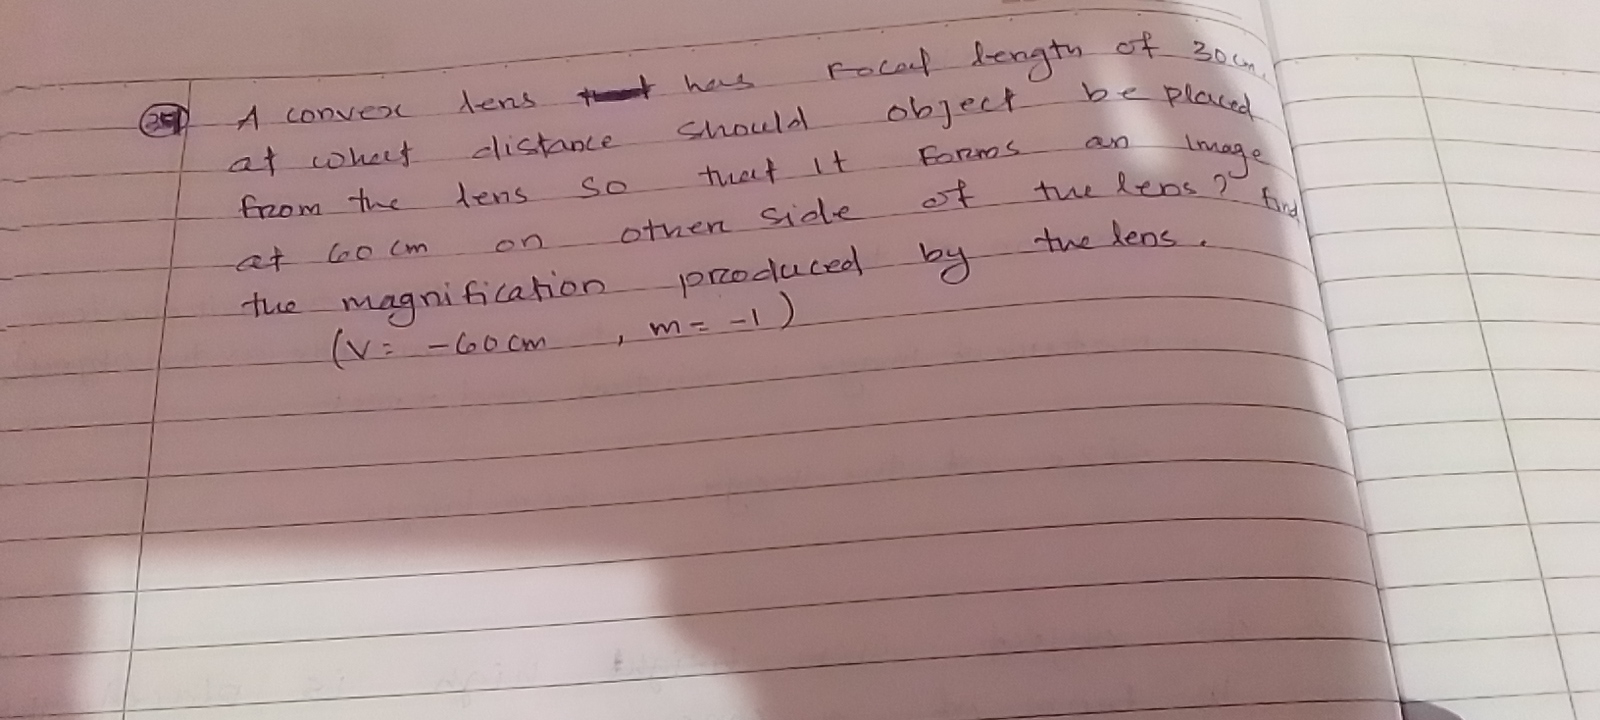 35) A convex lens has focal length of 30cm.
at what distance should object be placed
from the lens so that it forms an image
at 60 cm on other side of the lens? find
the magnification produced by the lens.
(v = -60cm , m = -1)